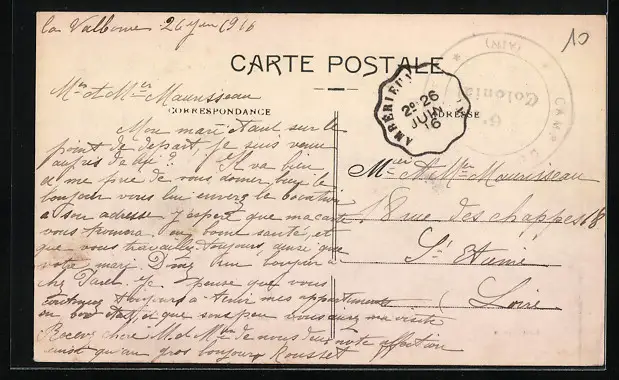 La Valbonne 26 Juin 1916
10
CARTE POSTALE
Mr et Mme Maurisseau
CORRESPONDANCE
ADRESSE
AMBÉRIEU
2e 26
JUIN
16
(AIN)
Colonial
CAMP
Mon mari étant sur le
point de départ, je suis venue
auprès de lui. Il va bien
et me prie de vous donner bien le
bonjour vous lui
a son adresse J'espère que ma carte
vous trouvera en bonne santé, et
que vous travaillez toujours, ainsi que
votre mari. bonjour
chez Je pense que vous
toujours a tenir mes appartements
en bon état, et que sous peu vous aurez ma visite
Recevez chère M et Mme de nous deux notre affection
ainsi qu'un gros bonjour Rousset
Mr et Mme Maurisseau
18 rue des chappes 18
St
Loire